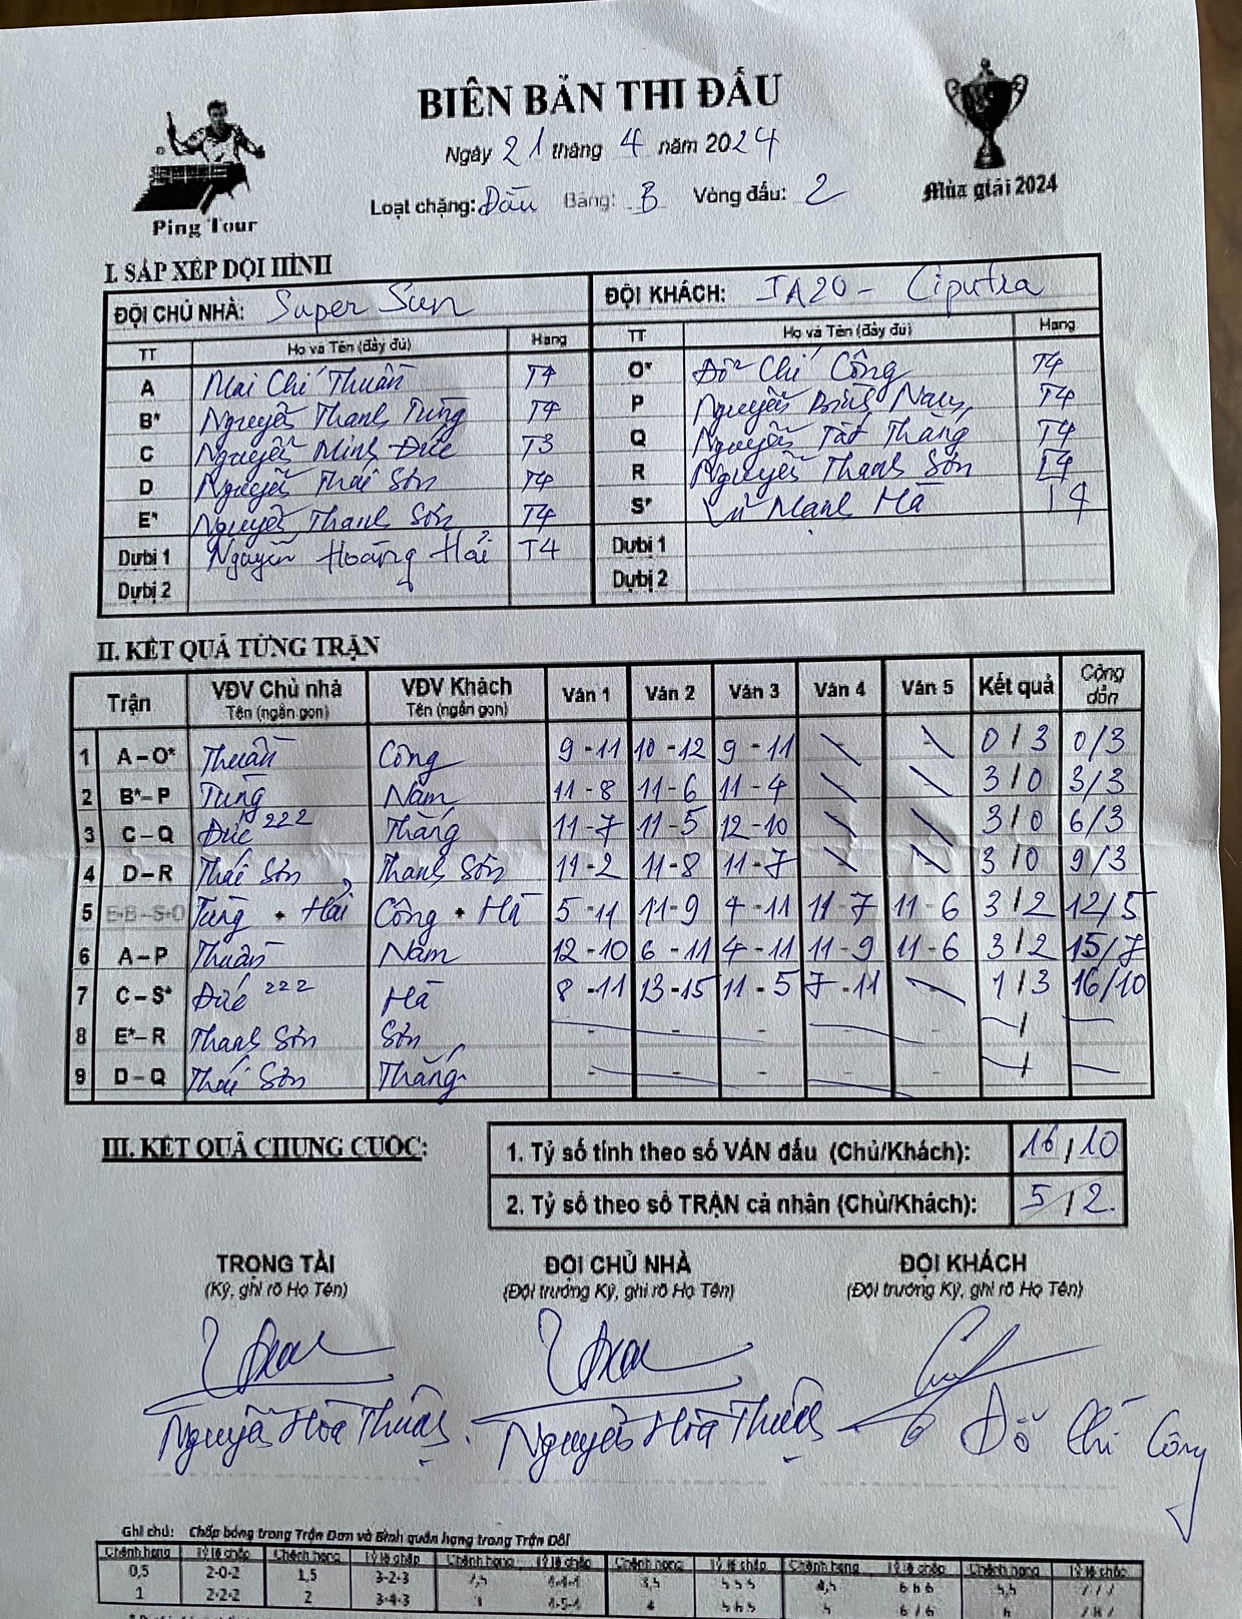 BIÊN BẢN THI ĐẤU
Ngày 21 tháng 4 năm 2024
Loạt chặng: Đầu Bảng: B Vòng đấu: 2
Ping Tour
Mùa giải 2024
I. SẮP XẾP ĐỘI HÌNH
ĐỘI CHỦ NHÀ: Super Sun ĐỘI KHÁCH: IA20 - Ciputra
TT Họ và Tên (đầy đủ) Hạng TT Họ và Tên (đầy đủ) Hạng
A Mai Chí Thuần T4 O* Đỗ Chí Công T4
B* Nguyễn Thanh Tùng T4 P Nguyễn Bình Nam T4
C Nguyễn Minh Đức T3 Q Nguyễn Tất Thắng T4
D Nguyễn Thái Sơn T4 R Nguyễn Thanh Sơn T4
E* Nguyễn Thanh Sơn T4 S* Mạnh Hà T4
Dự bị 1 Nguyễn Hoàng Hải T4 Dự bị 1
Dự bị 2 Dự bị 2
II. KẾT QUẢ TỪNG TRẬN
Trận VĐV Chủ nhà Tên (ngắn gọn) VĐV Khách Tên (ngắn gọn) Ván 1 Ván 2 Ván 3 Ván 4 Ván 5 Kết quả Cộng dồn
1 A – O* Thuần Công 9 - 11 10 - 12 9 - 11 0 / 3 0/3
2 B* – P Tùng Nam 11 - 8 11 - 6 11 - 4 3 / 0 3/3
3 C – Q Đức 222 Thắng 11 - 7 11 - 5 12 - 10 3 / 0 6/3
4 D – R Thái Sơn Thanh Sơn 11 - 2 11 - 8 11 - 7 3 / 0 9/3
5 E+B – S+O Tùng + Hải Công + Hà 5 - 11 11 - 9 4 - 11 11 - 7 11 - 6 3 / 2 12/5
6 A – P Thuần Nam 12 - 10 6 - 11 4 - 11 11 - 9 11 - 6 3 / 2 15/7
7 C – S* Đức 222 Hà 8 - 11 13 - 15 11 - 5 7 - 11 1 / 3 16/10
8 E* – R Thanh Sơn Sơn - - - - - /
9 D – Q Thái Sơn Thắng - - - - - /
III. KẾT QUẢ CHUNG CUỘC:
1. Tỷ số tính theo số VÁN đấu (Chủ/Khách): 16 / 10
2. Tỷ số theo số TRẬN cá nhân (Chủ/Khách): 5 / 2.
TRỌNG TÀI ĐỘI CHỦ NHÀ ĐỘI KHÁCH
(Ký, ghi rõ Họ Tên) (Đội trưởng Ký, ghi rõ Họ Tên) (Đội trưởng Ký, ghi rõ Họ Tên)
Nguyễn Hòa Thuận. Nguyễn Hòa Thuận Đỗ Chí Công
Ghi chú: Chấp bóng trong Trận Đơn và Bình quân hạng trong Trận Đôi
Chênh hạng Tỷ lệ chấp Chênh hạng Tỷ lệ chấp Chênh hạng Tỷ lệ chấp Chênh hạng Tỷ lệ chấp Chênh hạng Tỷ lệ chấp Chênh hạng Tỷ lệ chấp
0,5 2-0-2 1,5 3-2-3
1 2-2-2 2 3-4-3